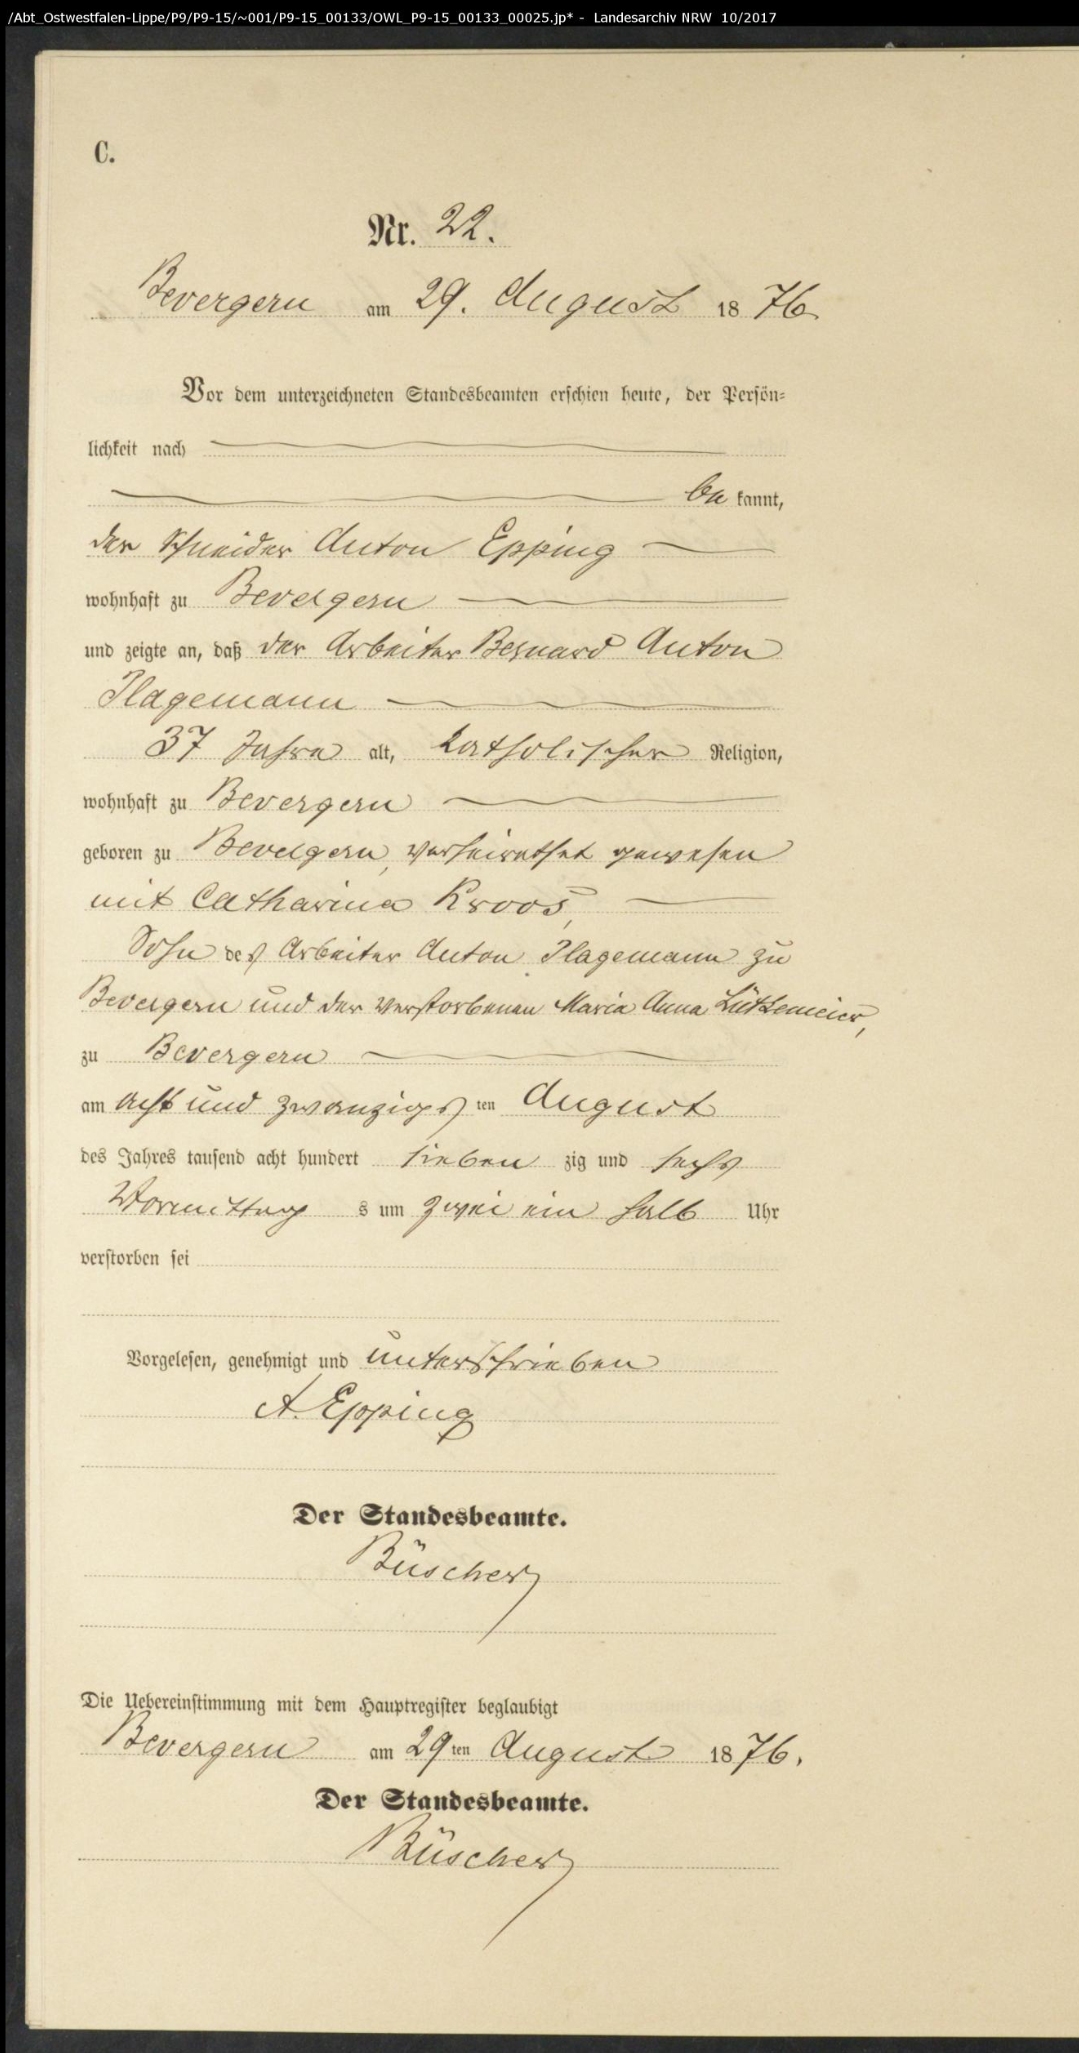 /Abt_Ostwestfalen-Lippe/P9/P9-15/~001/P9-15_00133/OWL_P9-15_00133_00025.jp* - Landesarchiv NRW 10/2017
C.
Nr. 22.
Bevergern am 29. August 1876
Vor dem unterzeichneten Standesbeamten erschien heute, der Persön-
lichkeit nach
be kannt,
der Schneider Anton Epping
wohnhaft zu Bevergern
und zeigte an, daß der Arbeiter Bernard Anton
Plagemann
37 Jahre alt, katholischer Religion,
wohnhaft zu Bevergern
geboren zu Bevergern, verheirathet gewesen
mit Catharina Kroos,
Sohn des Arbeiter Anton Plagemann zu
Bevergern und der verstorbenen Maria Anna Lütkemeier,
zu Bevergern
am acht und zwanzigs ten August
des Jahres tausend acht hundert sieben zig und sechs
Vormittag s um zwei ein halb Uhr
verstorben sei
Vorgelesen, genehmigt und unterschrieben
A. Epping
Der Standesbeamte.
Büscher
Die Uebereinstimmung mit dem Hauptregister beglaubigt
Bevergern am 29ten August 1876.
Der Standesbeamte.
Büscher